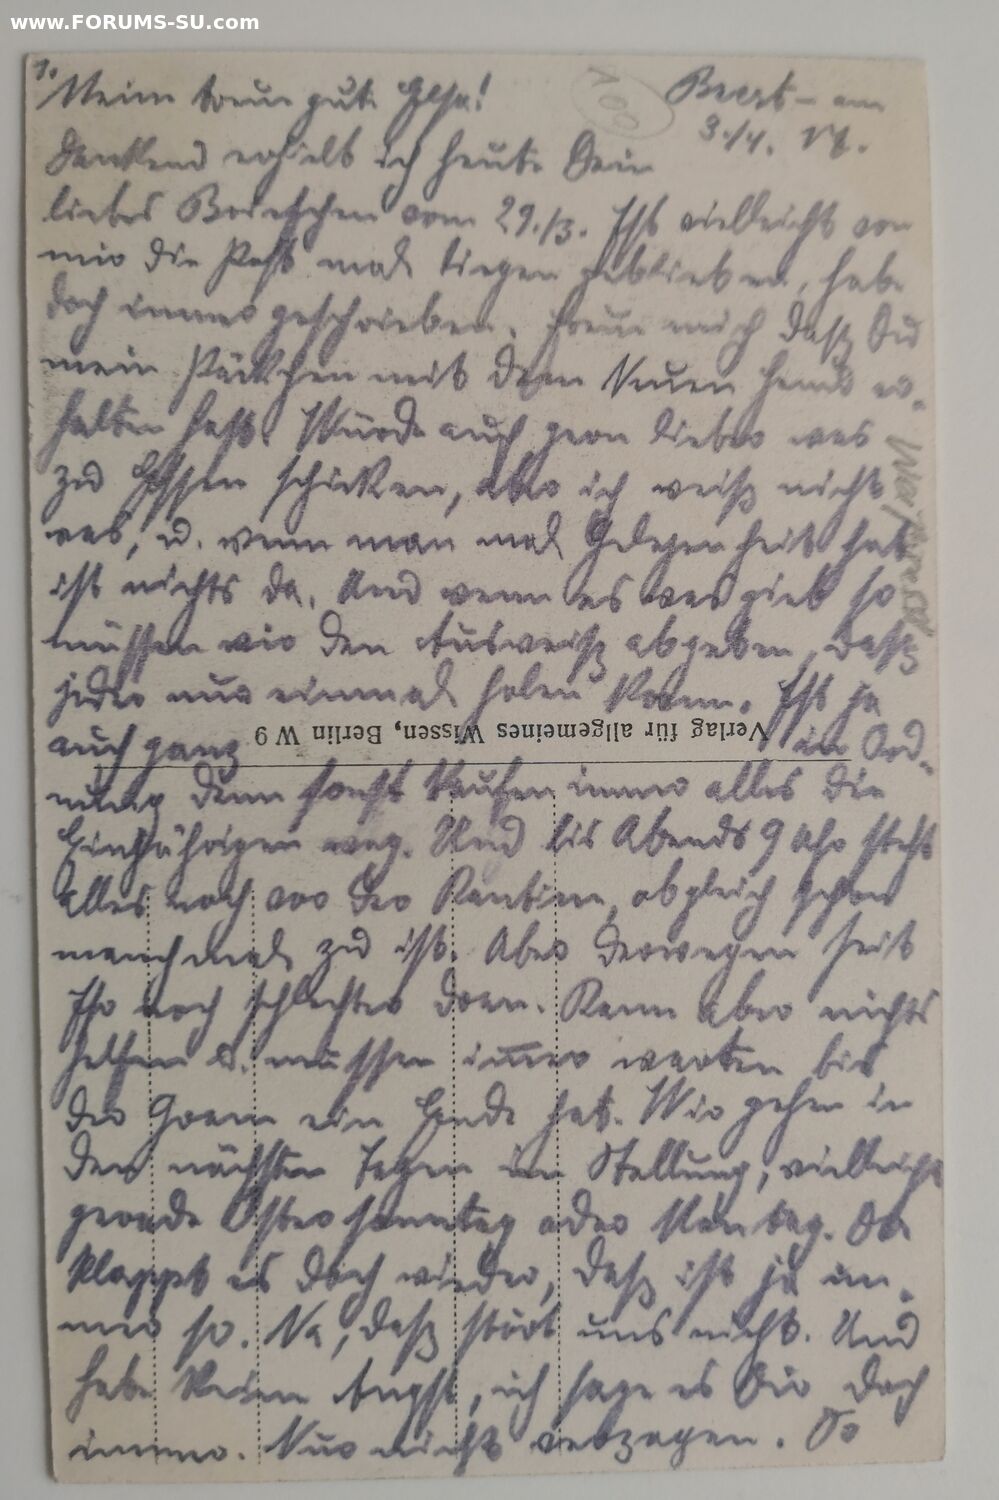 www.FORUMS-SU.com
1.
Mein treue gute Elsa!
100
am
3./4. 17.
Dankend erhielt ich heute Dein
liebes Briefchen vom 29./3. Ist vielleicht von
mir die Post mal liegen geblieben, habe
doch immer geschrieben. Freue mich daß Du
mein Päckchen mit dem Neuen Hemd er-
halten hast. Würde auch gern lieber was
zu Essen schicken, aber ich weiß nicht
was, u. wenn man mal Gelegenheit hat
ist nichts da. Und wenn es was gieb so
müssen wir den Ausweiß abgeben, daß
jeder nur einmal holen kann. Ist ja
auch ganz in Ord-
Verlag für allgemeines Wissen, Berlin W 9
nung denn sonst kaufen immer alles die
Einjährigen weg. Und bis Abends 9 Uhr steht
alles noch vor der Kantine, obgleich schon
manchmal zu ist. Aber derwegen seit
Ihr noch schlechter dran. Kann aber nichts
helfen u. müssen immer warten bis
der Gram ein Ende hat. Wir gehen in
den nächsten Tagen in Stellung, vielleicht
gerade Ostersonntag oder Montag. Da
klappt es doch wieder, daß ist ja im-
mer so. Na, daß stört uns nicht. Und
habe keine Angst, ich sage es Dir doch
immer. Nur nicht verzagen. So